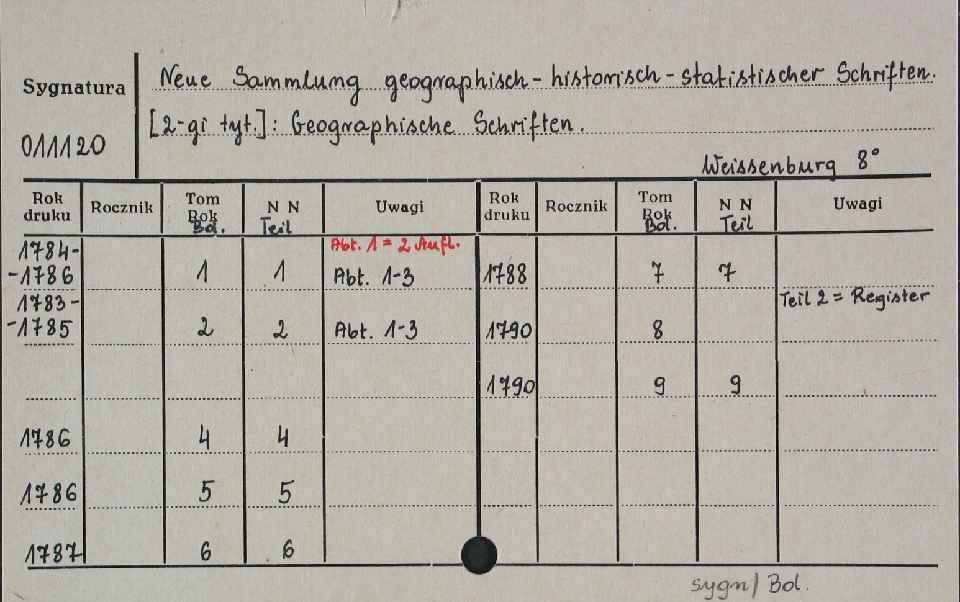 Sygnatura
011120
Neue Sammlung geographisch-historisch-statistischer Schriften.
[2-gi tyt.]: Geographische Schriften.
Weissenburg 8°
Rok druku Rocznik Tom Rok Bd. N N Teil Uwagi Rok druku Rocznik Tom Rok Bd. N N Teil Uwagi
Abt. 1 = 2 Aufl.
1784-
-1786 1 1 Abt. 1-3 1788 7 7
1783- Teil 2 = Register
-1785 2 2 Abt. 1-3 1790 8
1790 9 9
1786 4 4
1786 5 5
1787 6 6
sygn/ Bd.